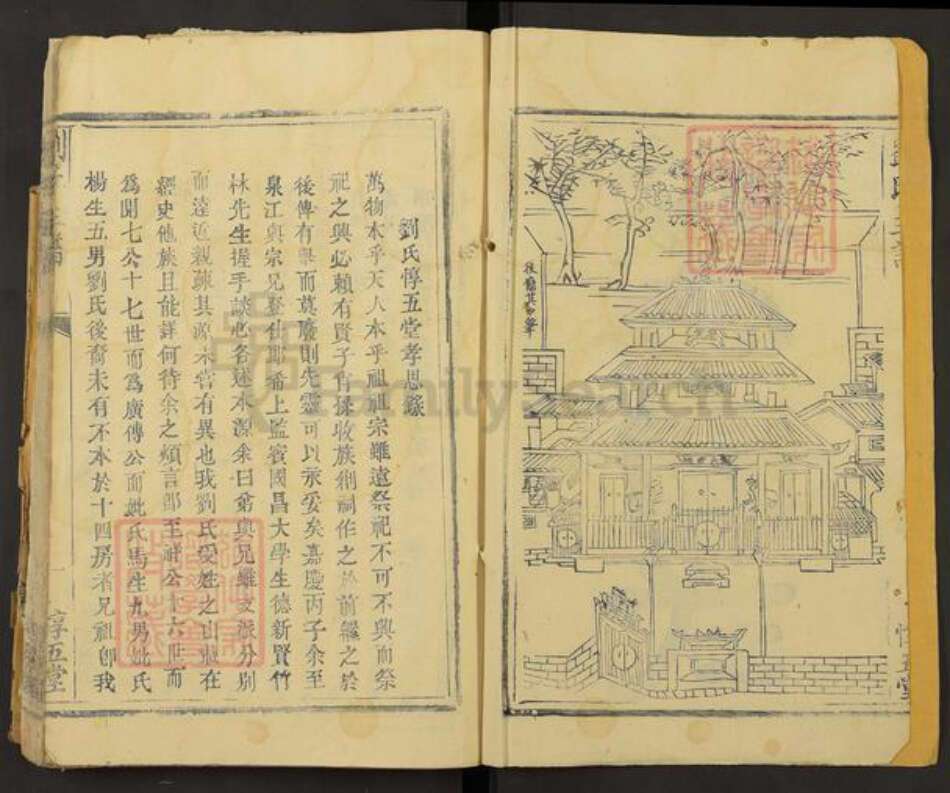 後龍其
劉氏惇五堂孝思錄
萬物本乎天人本乎祖祖宗雖遠祭祀不可不興而祭
祀之興必賴有賢子肯孫收族剏祠作之於前繼之於
後俾有舉而莫廢則先靈可以永妥矣嘉慶丙子余至
泉江與宗兄登仕郎希上監賓國昌大學生德新賢竹
林先生握手談心各述本源余曰弟與兄雖支派分別
而遠近親疎其源未嘗有異也我劉氏受姓之由載在
經史他族且能詳何待余之煩言卽至祥公十六世而
為開七公十七世而為廣傳公而妣氏馬生九男妣氏
楊生五男劉氏後裔未有不本於十四房者兄祖卽我
惇五堂
FamilySearch